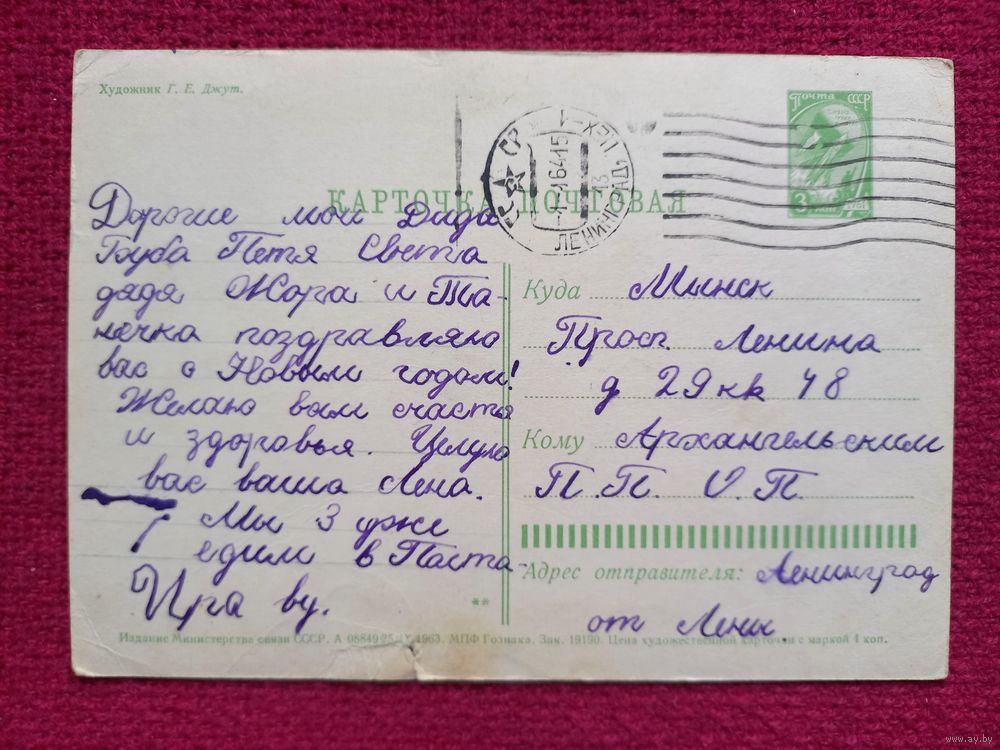 Художник Г. Е. Джут.
Почта СССР
3 коп
1961
ЛЕНИНГРАД
КАРТОЧКА ПОЧТОВАЯ
Дорогие мои Дида
Буба Петя Света
дядя Жора и Та-
нечка поздравляю
вас с Новым годом!
Желаю вам счастя
и здоровья. Целую
вас ваша Лена.
Мы 3 уже
едим в Паста-
Ира ву.
Куда Минск
Просп Ленина
д 29 кв 48
Кому Архангельским
П.П. О.П.
Адрес отправителя: Ленинград
от Лены.
**
Издание Министерства связи СССР. А 08849 25/X 1963. МПФ Гознака. Зак. 19190. Цена художественной карточки с маркой 4 коп.
www.ay.by